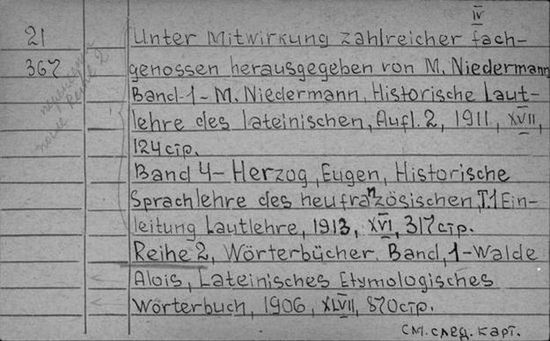 IV
21 Unter Mitwirkung zahlreicher fach-
367 genossen herausgegeben von M. Niedermann
Band-1-M. Niedermann, Historische Laut-
lehre des lateinischen, Aufl. 2, 1911, XVII,
124 стр.
Band 4-Herzog, Eugen, Historische
Sprachlehre des neufranzösischen, T.1 Ein-
leitung Lautlehre, 1913, XVI, 317 стр.
Reihe 2, Wörterbücher. Band, 1-Walde
Alois, Lateinisches Etymologisches
Wörterbuch, 1906, XLVII, 870 стр.
см. след. карт.